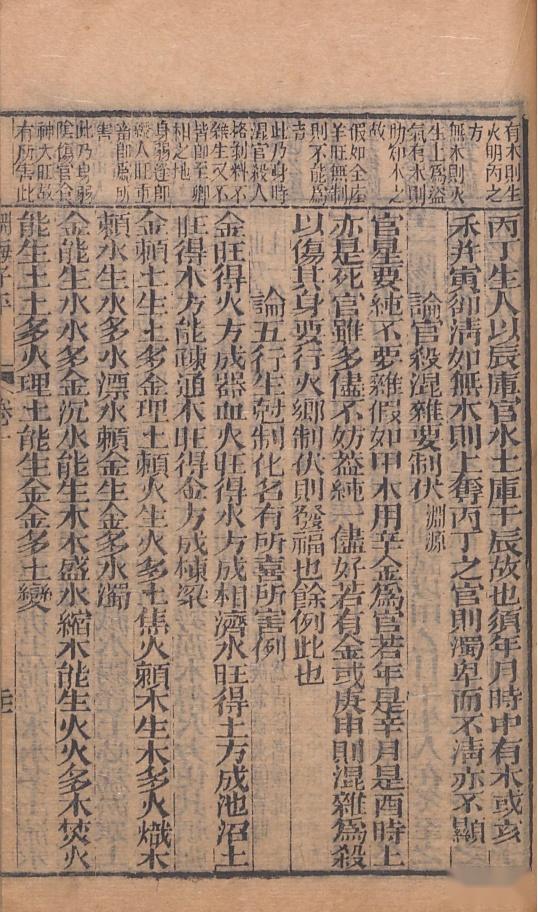 有木則生
火明丙之
方
無木則火
生上為盜
氣有木則
助知木之
故
假如全座
羊旺無制
則不能為
吉
此乃身時
混官殺人
格剝料不
雜生又不
皆即至卿
相之地
身弱逢即
人旺重
畨即為所
害
此乃身弱
陰傷官合
神大旺故
有所害此
丙丁生人以辰庫官水土庫于辰故也須年月時中有木或亥
禾并寅卻淸如無木則上奪丙丁之官則濁卑而不淸亦不顯
論官殺混雜要制伏 淵源
官星要純不要雜假如甲木用辛金爲官若年是辛月是酉時上
亦是死官雖多儘不妨葢純一儘好若有金或庚申則混雜爲殺
以傷其身要行火鄉制伏則發福也餘例此也
論五行生尅制化名有所喜所害例
金旺得火方成器血火旺得水方成相濟水旺得土方成池沼土
旺得木方能疎通木旺得金方成棟梁
金頼土生土多金理土頼火生火多土焦火頼木生木多火熾木
頼水生水多水漂水頼金生金多水濁
金能生水水多金沉水能生木木盛水縮木能生火火多木焚火
能生土土多火理土能生金金多土變
淵海子平